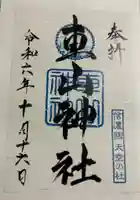 奉拝
車山神社
信濃國 天空の社
令和六年十月十六日